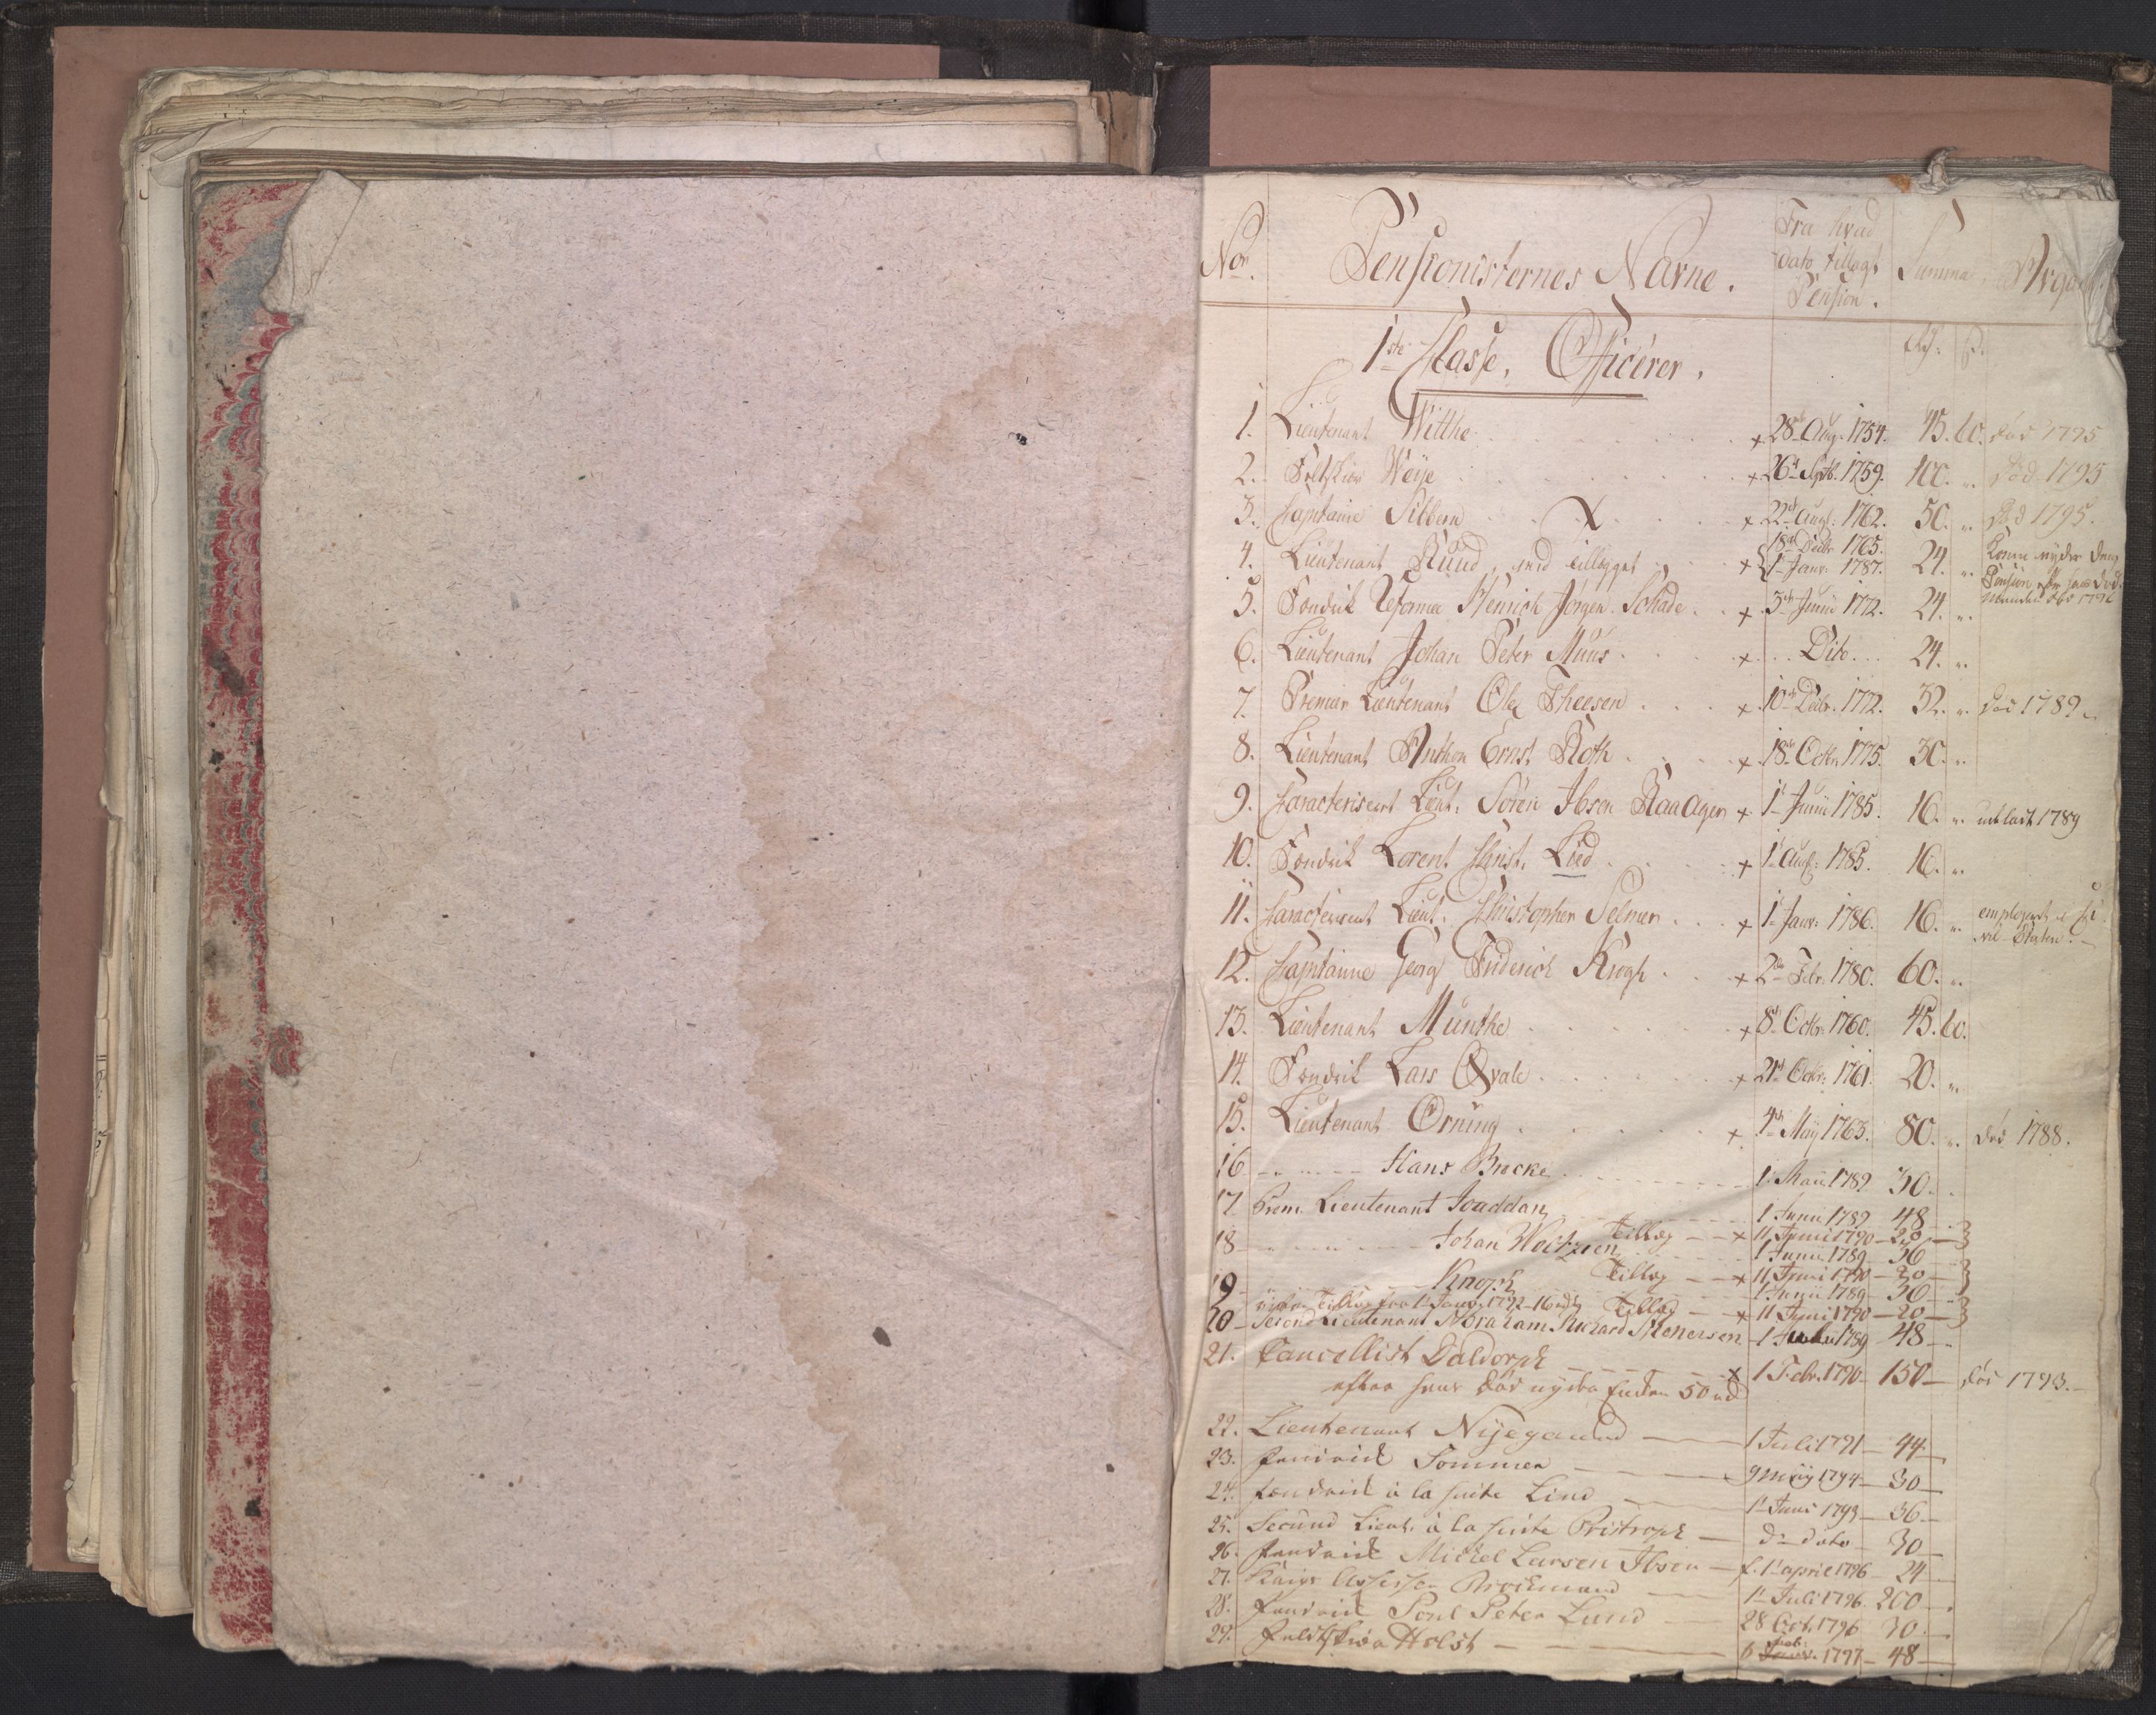 No. Pensionisternes Navne. Fra hvad dato tillagt Pension. Summa
1ste Classe, Officerer.
1. Lieutenant Witthe + 28 Aug. 1754. 45. 60. død 1795
2. Feltskier Weije + 26 Septb. 1759. 100. " død 1795
3. Capitaine Sibbern + 22 Augt. 1762. 50. " død 1795.
4. Lieutenant Ruud, med tillægget + 18 Decbr. 1765. 1 Janr. 1787. 24. " Konen nyder denne Pension efter hans død.
5. Fendrik Reformé Henrich Jörgen Schade + 3de Junii 1772. 24. "
6. Lieutenant Johan Peter Muus + Dito 24. "
7. Premier Lieutenant Ole Theesen + 10de Decbr. 1772. 32. " død 1789
8. Lieutenant Anthon Ernst Roth + 18de Octbr. 1775. 30. "
9. Caracteriseret Lieut. Sören Ibsen Raaager + 1 Junii 1785. 16. " udladt 1789
10. Fendrik Lorent Christ. Lied + 1 Augt. 1785. 16. "
11. Caracteriseret Lieut. Christopher Selmer + 1 Janr. 1786. 16. " employeret i Civil-Etaten.
12. Capitaine Georg Friderich Krogh + 2 Febr. 1780. 60. "
13. Lieutenant Munthe + 8 Octbr. 1760. 45. 60.
14. Fendrik Lars Qvale + 21 Octbr. 1761. 20. "
15. Lieutenant Örning + 4de Maij 1763. 80. " død 1788.
16 Hans Brocke 1 Maii 1789 30.
17 Prem. Lieutenant Jouddan 1 Junii 1789 48
Tillæg + 11 Junii 1790 20
18 Johan Woltzien 1 Junii 1789 36
Tillæg + 11 Juni 1790 20
19 Knoph 1 Junii 1789 36
nyder Tillæg fra 1 Janr. 1792 16 rd Tillæg + 11 Juni 1790 20
20 Second Lieutenant Abraham Richard Stenersen 1 Juli 1789 48
21. Cancellist Daldorph + 1 Febr. 1790 150 død 1793.
efter hans død nyder Enken 50 rd
22. Lieutenant Nijegaard 1 Juli 1791 44
23. Fendrick Sommer 9 Maij 1794 30
24. Fendrick à la suite Lind 1 Juni 1793 36
25. Secund Lieut. à la suite Pristroph do dato 30
26. Fendrick Michel Larsen Ibsen f. 1 april 1796 24
27. Krigs Assessor Brochmand 1 Juli 1796. 200
28. Fendrick Poul Peter Lund 28 Oct. 1796 30
29. Feldtskiær Holst 6 Feb. 1797 48